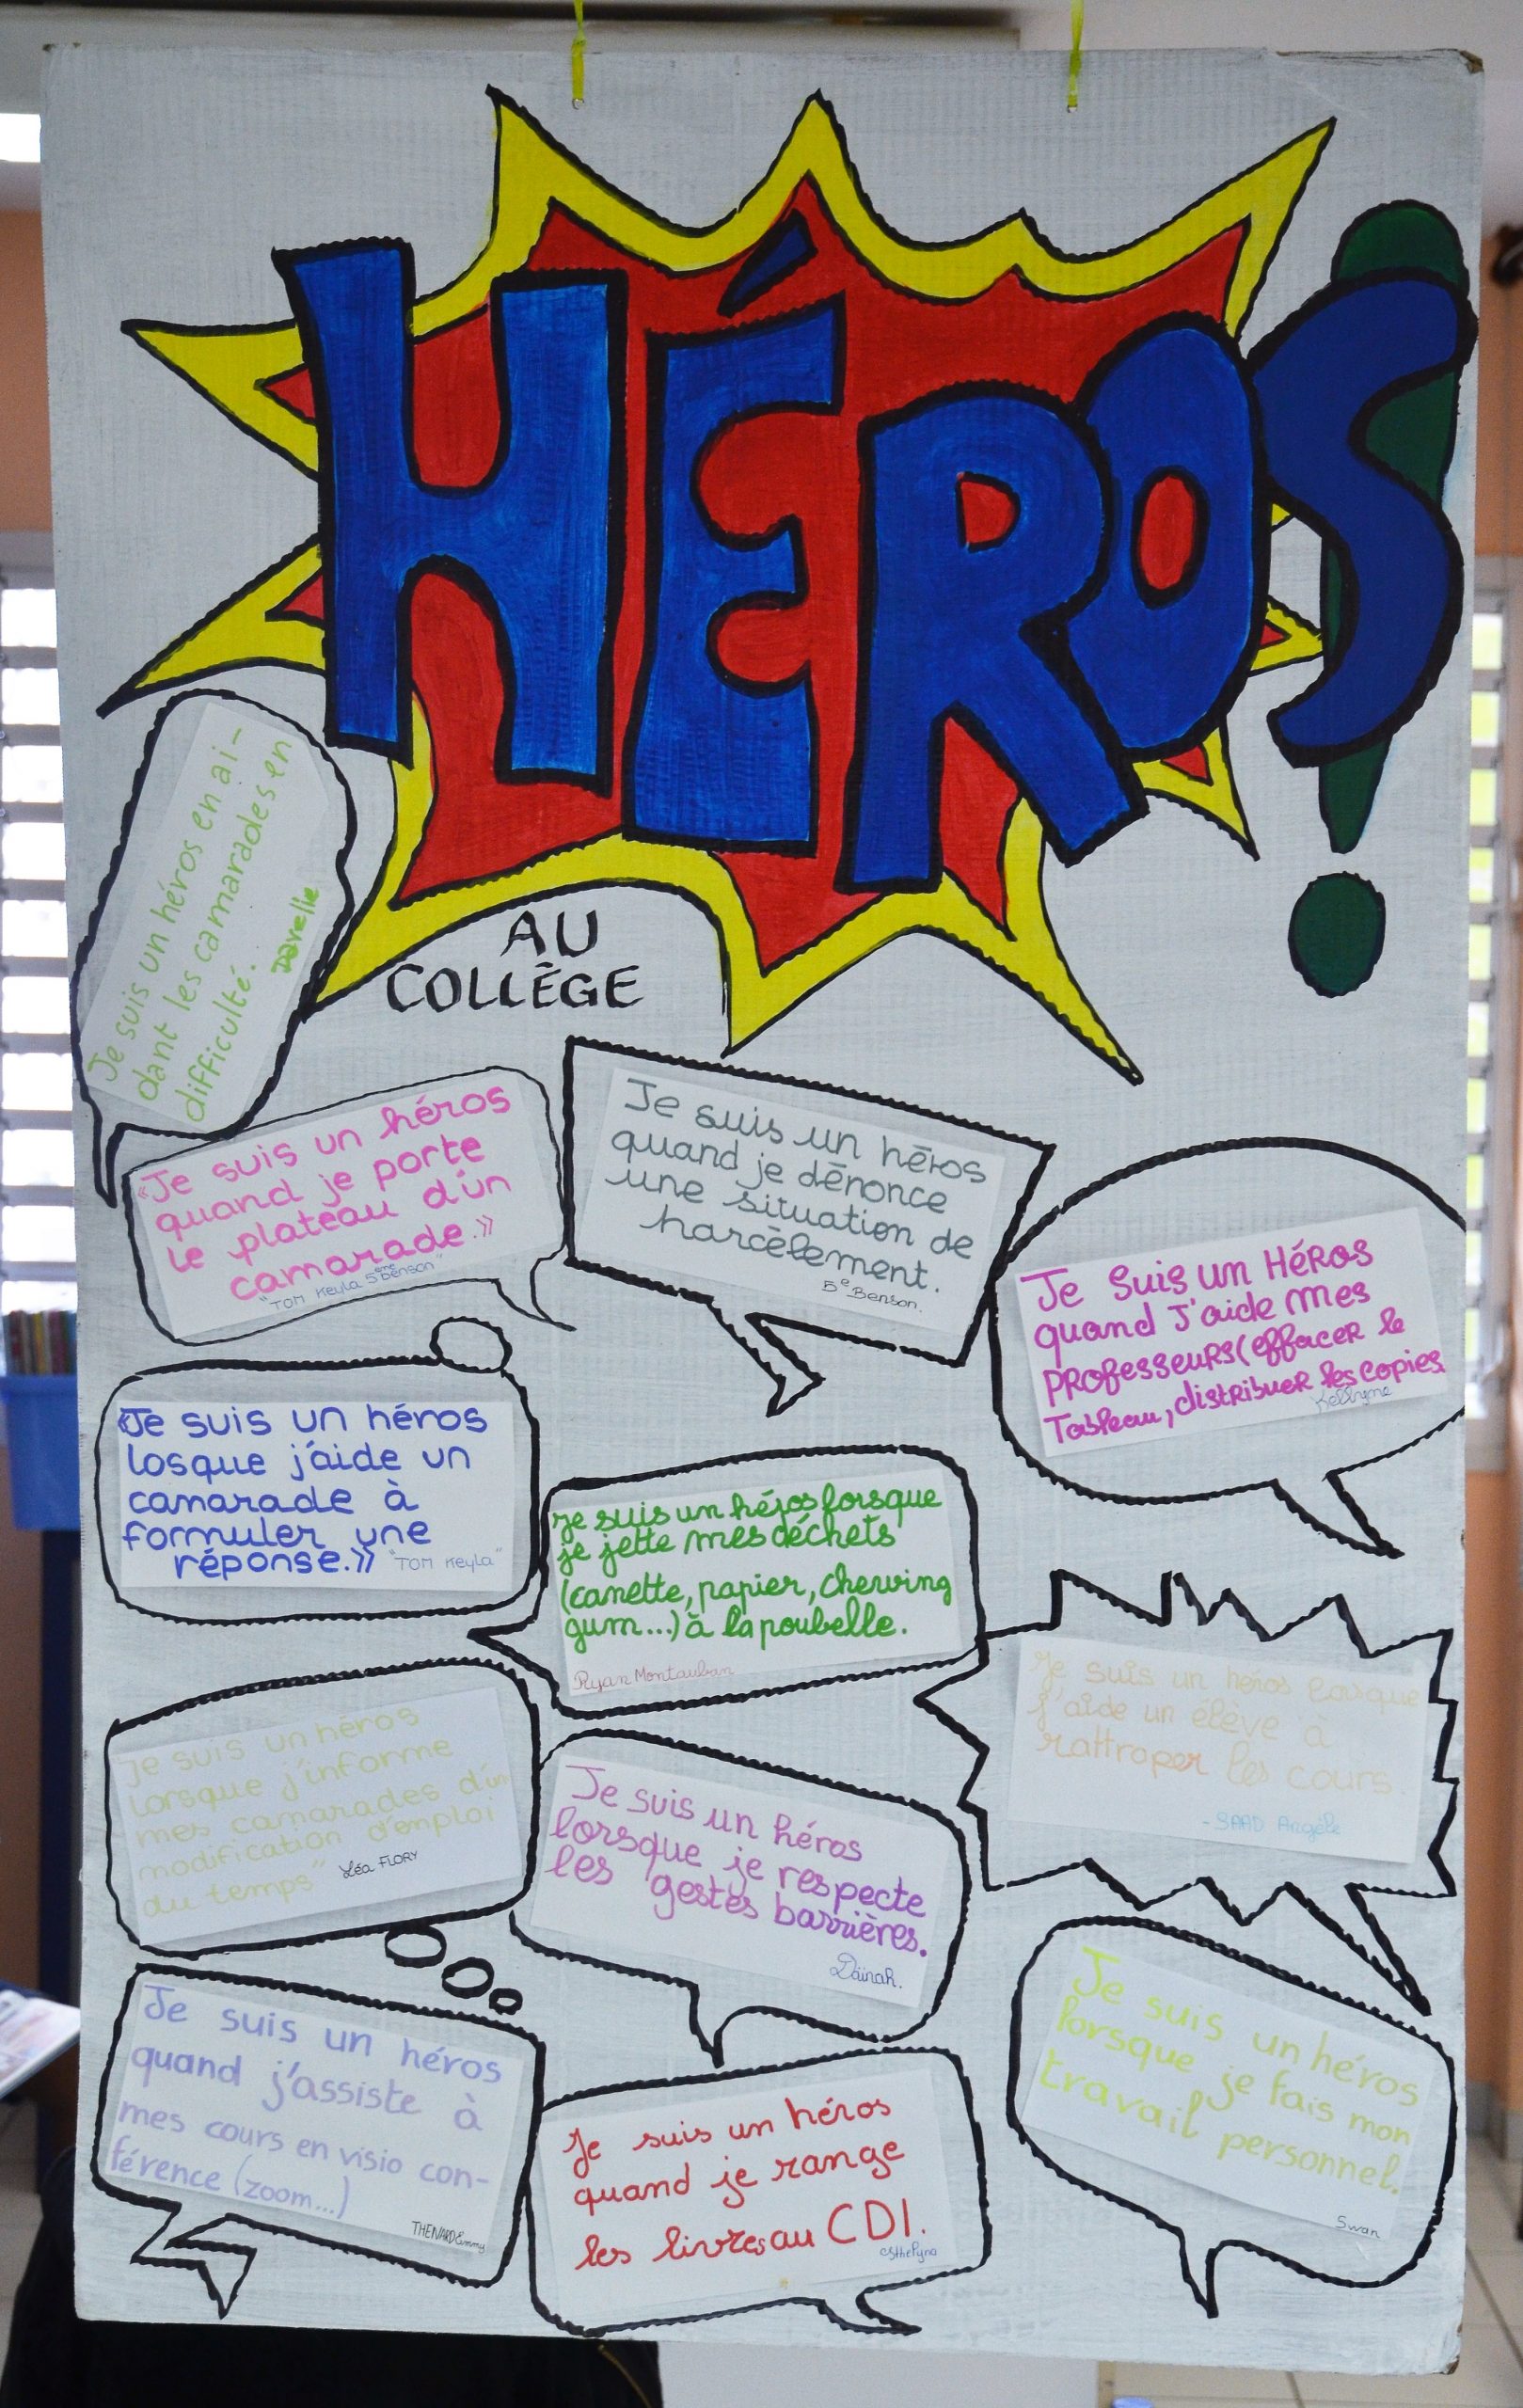 HÉROS!
AU
COLLÈGE
Je suis un héros en ai-
dant les camarades en
difficulté.
Davelie
«Je suis un héros
quand je porte
le plateau d'un
camarade.»
"TOM Keyla 5ème benson"
Je suis un héros
quand je dénonce
une situation de
harcèlement.
5e Benson.
Je Suis un Héros
quand J'aide mes
professeurs (effacer le
Tableau, distribuer les copies
Kellyme
«Je suis un héros
losque j'aide un
camarade à
formuler une
réponse.» "TOM Keyla"
je suis un héros lorsque
je jette mes déchets
(canette, papier, chewing
gum...) à la poubelle.
Ryan Montauban
Je suis un héros lorsque
j'aide un élève à
rattraper les cours
- SAAD Angèle
Je suis un héros
lorsque j'informe
mes camarades d'un
modification d'emploi
du temps" Léa FLORY
Je suis un héros
lorsque je respecte
les gestes barrières.
Daïnah.
Je suis un héros
lorsque je fais mon
travail personnel.
Swan
Je suis un héros
quand j'assiste à
mes cours en visio con-
férence (zoom...)
THENARD Emmy
Je suis un héros
quand je range
les livres au CDI.